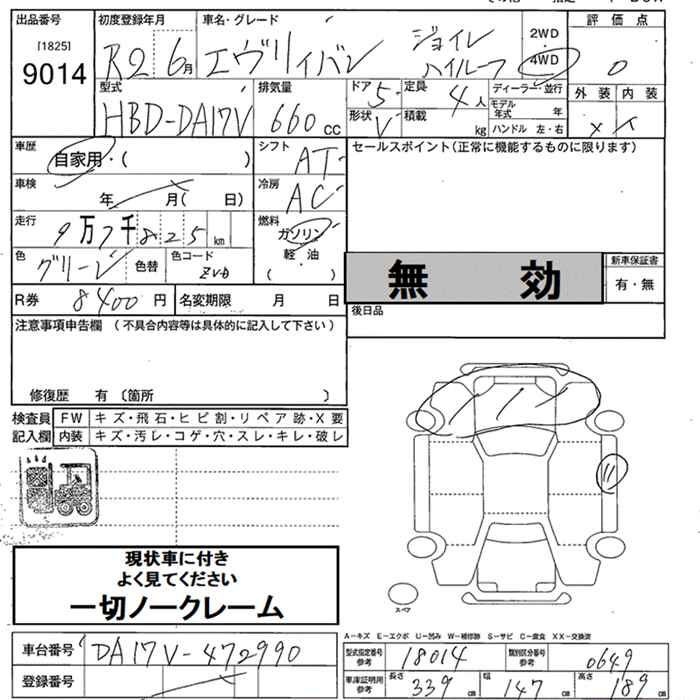 出品番号 初度登録年月 車名・グレード 評 価 点
[1825]
9014
R2 6月 エヴリィバン ジョイン ハイルーフ 2WD 4WD 0
型式 排気量 ドア 定員 ディーラー・並行 外 装 内 装
HBD-DA17V 660 cc 5 4人 モデル年式 年
形状 V 積載 kg ハンドル 左・右 ×
車歴 自家用・( ) シフト AT セールスポイント(正常に機能するものに限ります)
車検 年 月( 日) 冷房 AC
走行 9万7千825km 燃料 ガソリン
軽・油
( )
色 グリーン 色替 色コード ZVD
無 効 新車保証書
有・無
R券 8400円 名変期限 月 日
後日品
注意事項申告欄 (不具合内容等は具体的に記入して下さい)
修復歴 有 〔箇所 〕
検査員 FW キズ・飛石・ヒビ割・リペア跡・X要
記入欄 内装 キズ・汚レ・コゲ・穴・スレ・キレ・破レ
現状車に付き
よく見てください
一切ノークレーム
スペア
A-キズ E-エクボ U-凹み W-補修跡 S-サビ C-腐食 XX-交換済
車台番号 DA17V-472990
型式指定番号 参考 18014 類別区分番号 参考 0649
登録番号
車庫証明用 参考 長さ 339cm 幅 147cm 高さ 189cm